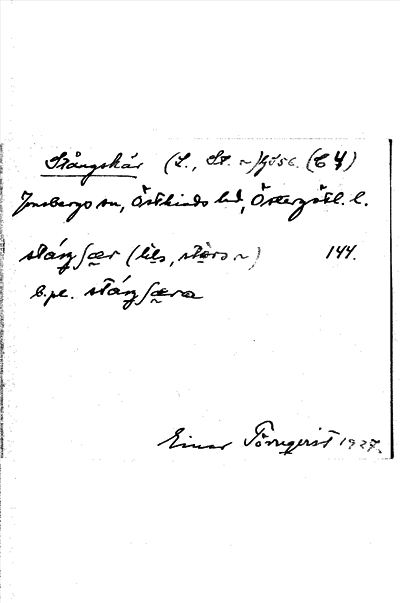 Stångskär (L., St. ~) hsSk. (C 4)
Jonsbergs sn, Östkinds hd, Östergötl. l.
stáŋʃær (lìls, stòrs ~) 144.
b. pl. stáŋʃæra
Einar Törnqvist 1927.